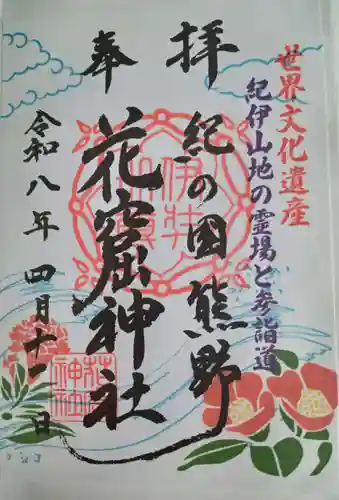 世界文化遺産
紀伊山地の霊場と参詣道
奉拝
紀の国熊野
花窟神社
令和八年四月十一日
花窟
神社